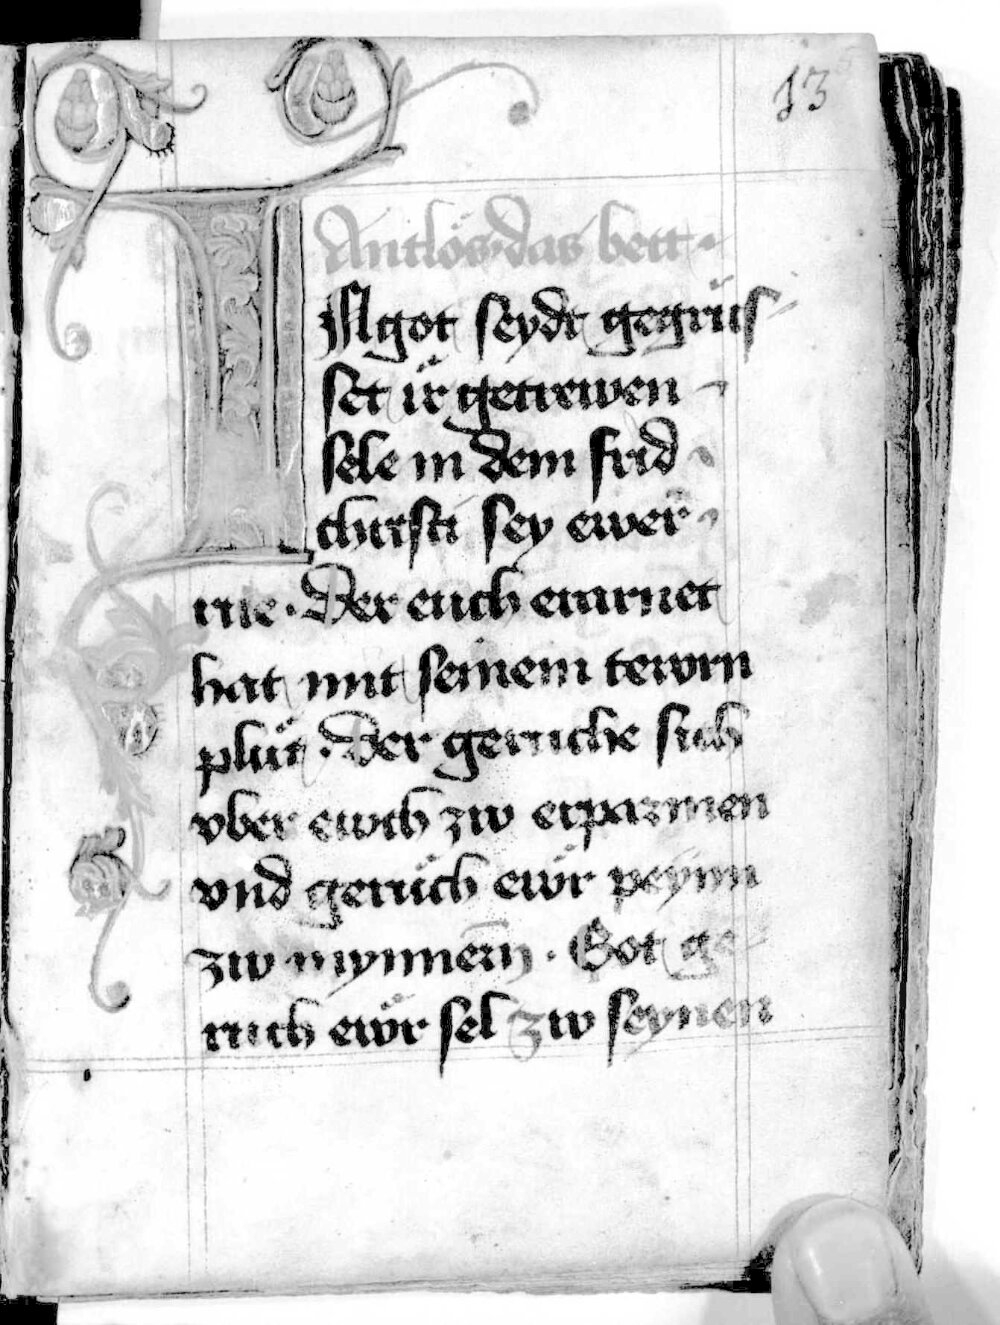 13
Antlös das bett ·
INgot seydt gegrüs
set ir getrewen
sele in dem frid
christi sey ewer
rue · Der euch erarnet
hat mit seinem tewrn
plüt · Der geruche sich
vber ewch zw erparmen
vnd gerüch ewr peynn
zw mynnern · Got ge
ruch ewr sel zw seynen